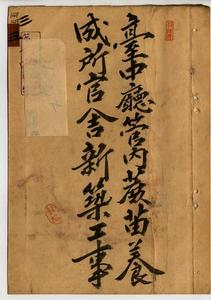 臺中廳管內蔗苗養
成所官舍新築工事
三